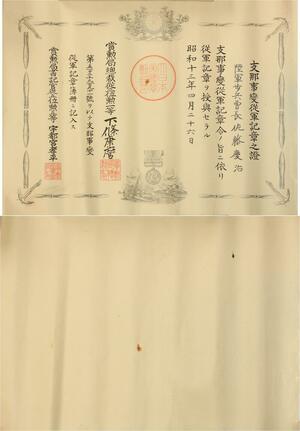 支那事變從軍記章之證
陸軍步兵曹長佐藤慶治
支那事變從軍記章令ノ旨ニ依リ
從軍記章ヲ授與セラル
昭和十三年四月二十六日
賞勳局總裁從位勳等下條康麿
第 號ヲ以テ支那事變
從軍記章簿冊ニ記入ス
賞勳局書記官位勳等宇都宮孝平